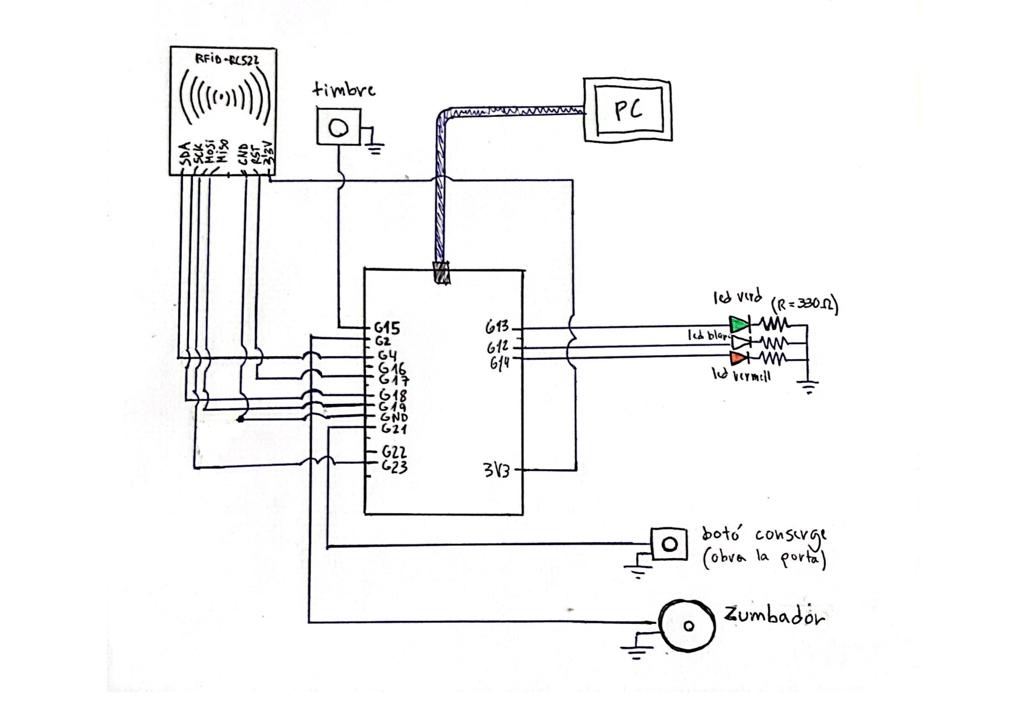 RFiD-RC522
SDA
SCK
MOSi
MiSO
GND
RST
3'3V
timbre
PC
G15
G2
G4
G16
G17
G18
G19
GND
G21
G22
G23
G13
G12
G14
3V3
led verd
(R=330Ω)
led blanc
led vermell
botó conserge
(obre la porta)
Zumbador